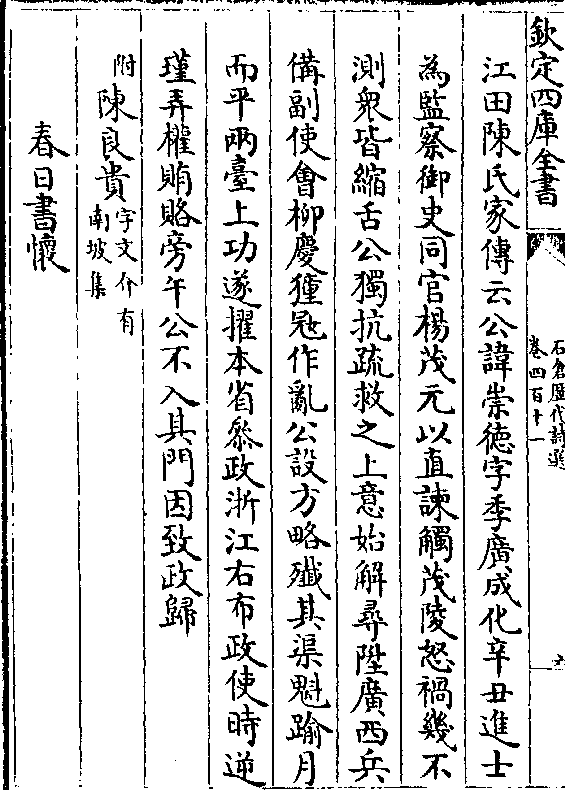 欽定四庫全書
石倉歷代詩選
卷四百十一
江田陳氏家傳云公諱崇德字季廣成化辛丑進士
為監察御史同官楊茂元以直諫觸茂陵怒禍幾不
測衆皆縮舌公獨抗疏救之上意始解尋陞廣西兵
備副使會柳慶獞冦作亂公設方略殲其渠魁踰月
而平兩臺上功遂擢本省叅政浙江右布政使時逆
瑾弄權賄賂旁午公不入其門因致政歸
附陳良貴字文介有
南坡集
春日書懷